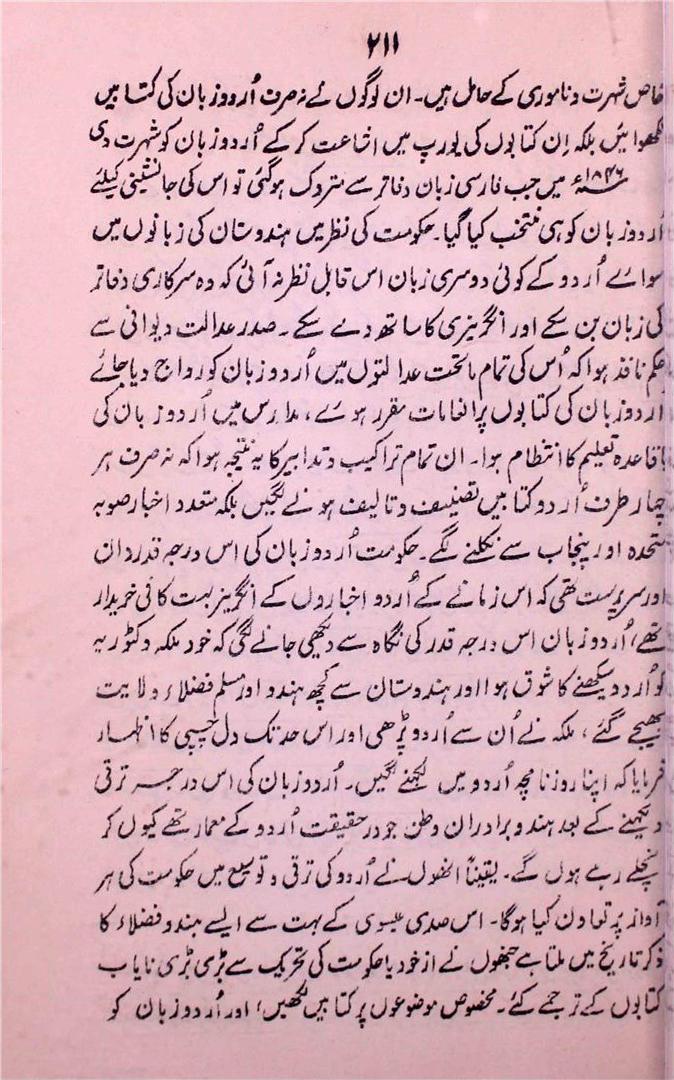 ۲۱۱
خاص شہرت و ناموری کے حامل ہیں۔ ان لوگوں نے نہ صرف اُردو زبان کی کتابیں
لکھوائیں بلکہ اِن کتابوں کی یورپ میں اشاعت کر کے اُردو زبان کو شہرت دی
۱۸۴۶ء میں جب فارسی زبان دفاتر سے متروک ہوگئی تو اس کی جانشینی کیلئے
اُردو زبان کو ہی منتخب کیا گیا۔ حکومت کی نظر میں ہندوستان کی زبانوں میں
سوائے اُردو کے کوئی دوسری زبان اس قابل نظر نہ آئی کہ وہ سرکاری دفاتر
کی زبان بن سکے اور انگریزی کا ساتھ دے سکے۔ صدر عدالت دیوانی سے
حکم نافذ ہوا کہ اُس کی تمام ماتحت عدالتوں میں اُردو زبان کو رواج دیا جائے
اردو زبان کی کتابوں پر انعامات مقرر ہوئے، مدارس میں اُردو زبان کی
باقاعدہ تعلیم کا انتظام ہوا۔ ان تمام تراکیب و تدابیر کا یہ نتیجہ ہوا کہ نہ صرف ہر
چہار طرف اُردو کتابیں تصنیف و تالیف ہونے لگیں بلکہ متعدد اخبار صوبہ
متحدہ اور پنجاب سے نکلنے لگے۔ حکومت اُردو زبان کی اس درجہ قدردان
اور سرپرست تھی کہ اس زمانے کے اُردو اخباروں کے انگریز بہت کافی خریدار
تھے، اُردو زبان اس درجہ قدر کی نگاہ سے دیکھی جانے لگی کہ خود ملکہ وکٹوریہ
کو اُردو سیکھنے کا شوق ہوا اور ہندوستان سے کچھ ہندو اور مسلم فضلاء ولایت
بھیجے گئے، ملکہ نے اُن سے اُردو پڑھی اور اس حد تک دل چسپی کا اظہار
فرمایا کہ اپنا روزنامچہ اُردو میں لکھنے لگیں۔ اُردو زبان کی اس درجہ ترقی
دیکھنے کے بعد ہندو برادران وطن جو درحقیقت اُردو کے معمار تھے کیوں کر
نچلے رہے ہوں گے۔ یقیناً انھوں نے اُردو کی ترقی و توسیع میں حکومت کی ہر
آواز پر تعاون کیا ہوگا۔ اس صدی عیسوی کے بہت سے ایسے ہندو فضلاء کا
ذکر تاریخ میں ملتا ہے جنھوں نے از خود یا حکومت کی تحریک سے بڑی بڑی نایاب
کتابوں کے ترجمے کئے۔ مخصوص موضوعوں پر کتابیں لکھیں، اور اُردو زبان کو